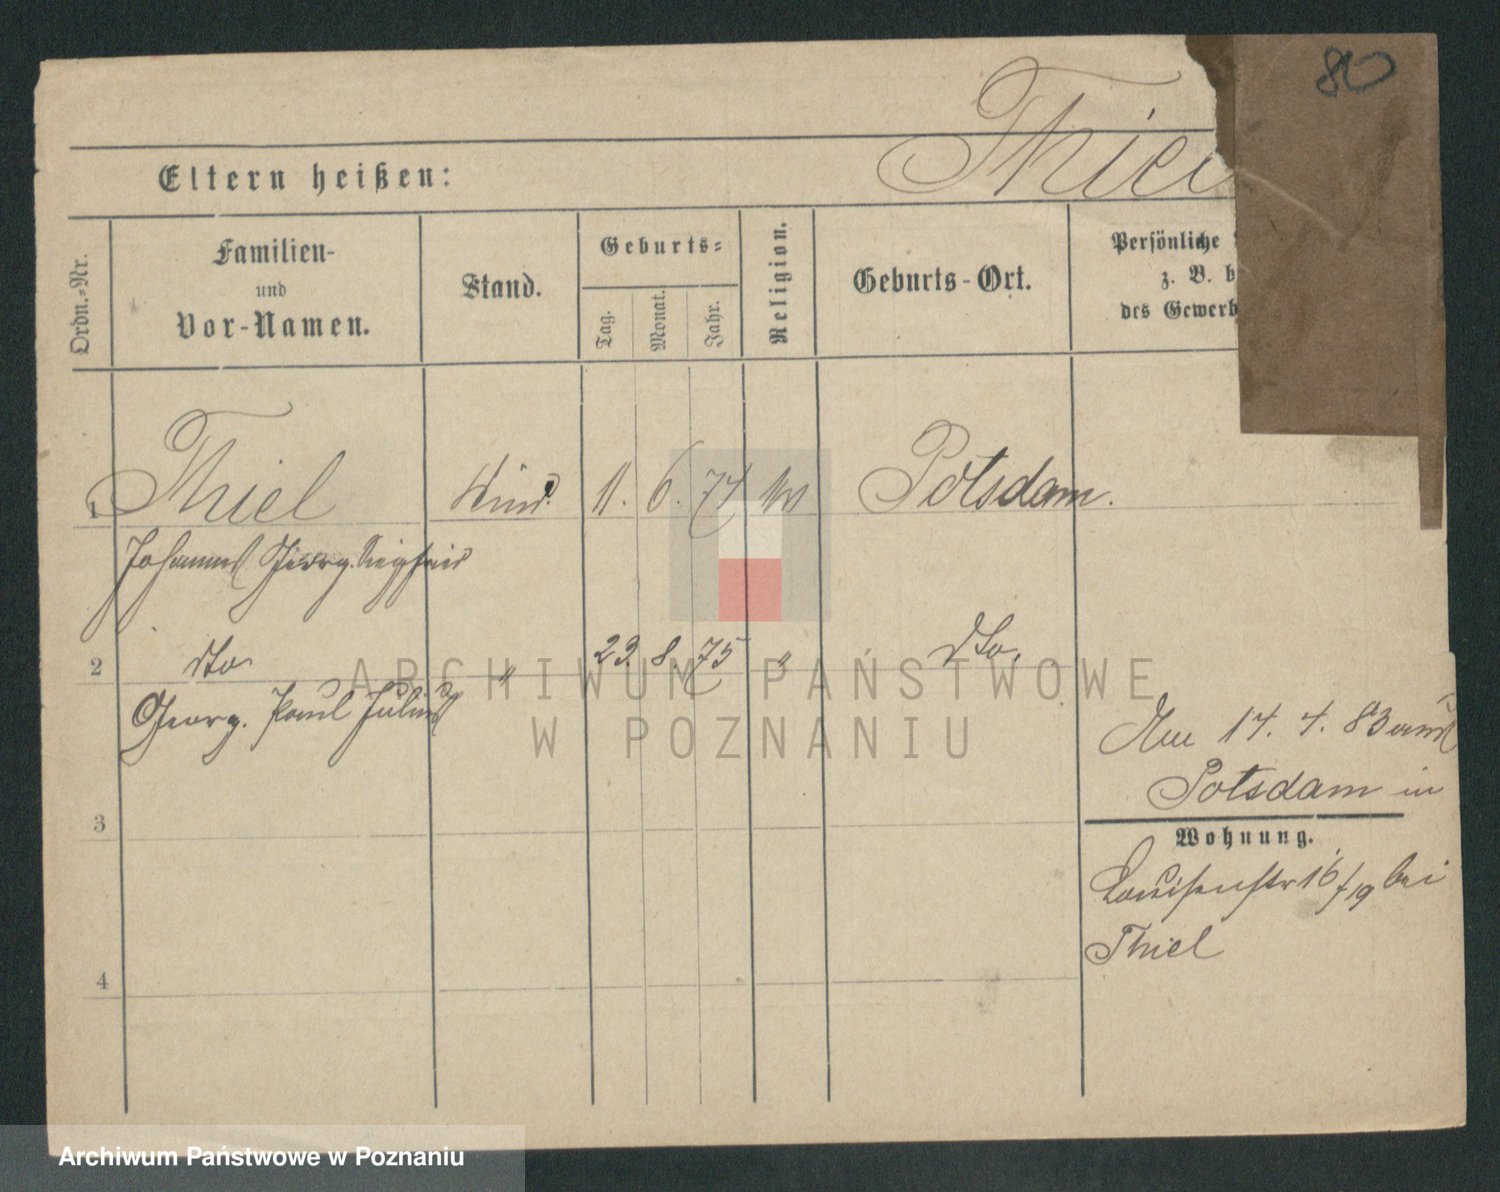 80
Thiel
Eltern heißen:
Ordn.-Nr.
Familien-
und
Vor-Namen.
Stand.
Geburts-
Tag.
Monat.
Jahr.
Religion.
Geburts-Ort.
Persönliche
z. B. b
des Gewerb
1 Thiel Kind. 11. 6. 74 Potsdam.
Johannes Georg. Siegfried
2 dto " 23. 8. 75 " dto.
Georg. Paul Julius
Am 14. 4. 83 aus
Potsdam in
3
Wohnung.
Louisenstr 16/19 bei
Thiel
4
ARCHIWUM PAŃSTWOWE
W POZNANIU
Archiwum Państwowe w Poznaniu